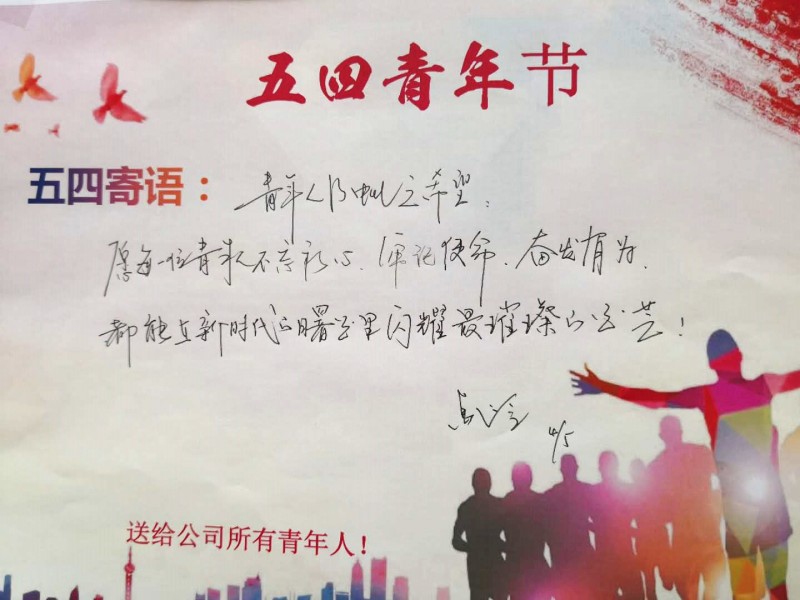 五四青年节
五四寄语：青年人乃之希望，
愿每一位青年人不忘初心、牢记使命、奋发有为，
都能在新时代的曙光里闪耀最璀璨的光芒！
4/5
送给公司所有青年人！